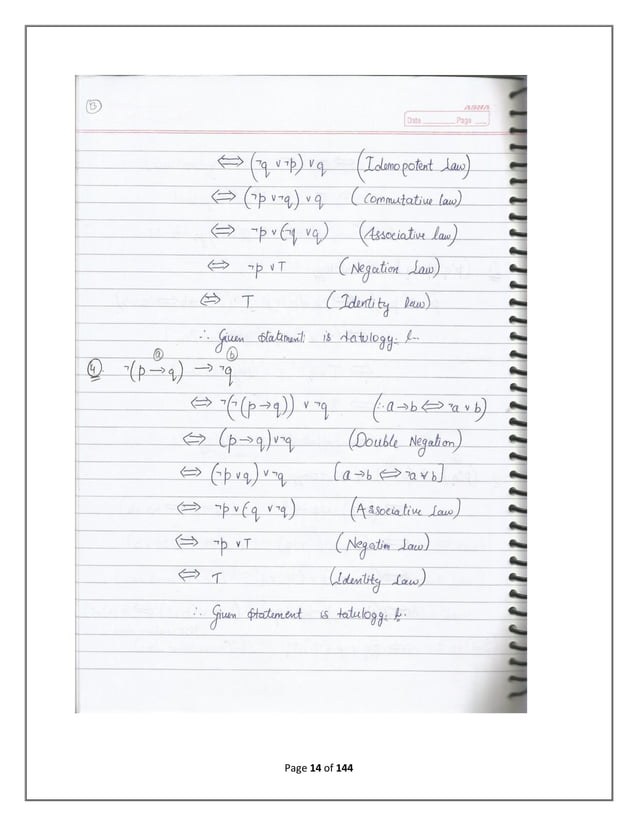 13
ASHA
Date Page
⟺ (¬q ∨ ¬p) ∨ q (Idemopotent Law)
⟺ (¬p ∨ ¬q) ∨ q (Commutative law)
⟺ ¬p ∨ (¬q ∨ q) (Associative law)
⟺ ¬p ∨ T (Negation Law)
⟺ T (Identity law)
∴ Given statement is tatulogy.
ⓐ ⓑ
④. ¬(p → q) → ¬q
⟺ ¬(¬(p → q)) ∨ ¬q (∵ a → b ⟺ ¬a ∨ b)
⟺ (p → q) ∨ ¬q (Double Negation)
⟺ (¬p ∨ q) ∨ ¬q [a → b ⟺ ¬a ∨ b]
⟺ ¬p ∨ (q ∨ ¬q) (Associative Law)
⟺ ¬p ∨ T (Negation Law)
⟺ T (Identity Law)
∴ Given statement is tatulogy.
Page 14 of 144